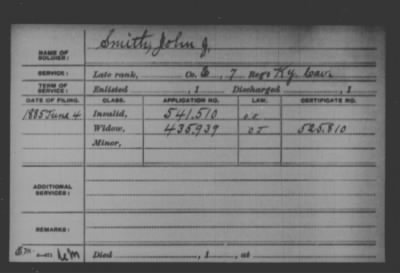 NAME OF SOLDIER: Smith, John J.
SERVICE: Late rank, Co. E, 7 Reg't Ky. Cav.
TERM OF SERVICE: Enlisted , 1 Discharged , 1
DATE OF FILING. CLASS. APPLICATION NO. LAW. CERTIFICATE NO.
1885 June 4 Invalid, 541,510
Widow, 435,939 525,810
Minor,
ADDITIONAL SERVICES:
REMARKS:
Died , 1 , at